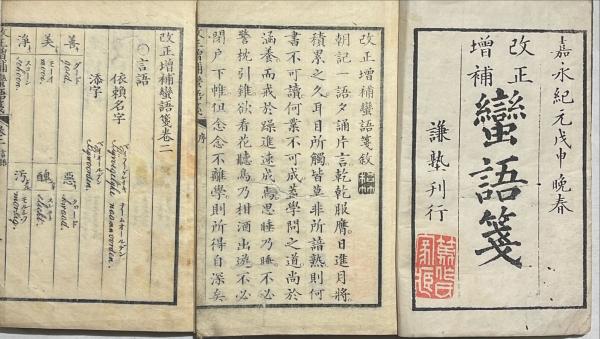 嘉永紀元戊申晩春
改正
增補
蠻語箋
謙塾刊行
改正增補蠻語箋敘
朝記一語夕誦片言乾乾服膺日進月將
積累之久耳目所觸皆莫非所諳熟則何
書不可讀何業不可成蓋學問之道尚於
涵養而戒於躁進速成焉思睡乃睡不必
警枕引錐欲看花聽鳥乃柑酒出遊不必
閉戶下帷但念念不離學則所得自深矣
序
改正增補蠻語箋卷二
○言語
依賴名字
添字
善 goed.
惡 kwaad.
美 mooi.
醜
淨 schoon.
汚 morsig.